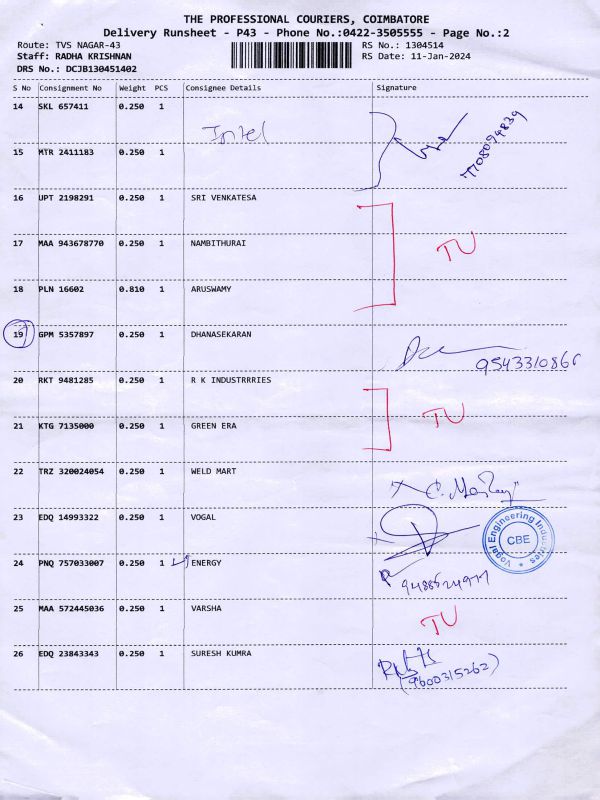 THE PROFESSIONAL COURIERS, COIMBATORE
Delivery Runsheet - P43 - Phone No.:0422-3505555 - Page No.:2
Route: TVS NAGAR-43 RS No.: 1304514
Staff: RADHA KRISHNAN RS Date: 11-Jan-2024
DRS No.: DCJB130451402
S No Consignment No Weight PCS Consignee Details Signature
14 SKL 657411 0.250 1
Intel 7708094839
15 MTR 2411183 0.250 1
16 UPT 2198291 0.250 1 SRI VENKATESA
17 MAA 943678770 0.250 1 NAMBITHURAI TU
18 PLN 16602 0.810 1 ARUSWAMY
19 GPM 5357897 0.250 1 DHANASEKARAN
9543310866
20 RKT 9481285 0.250 1 R K INDUSTRRRIES
21 KTG 7135000 0.250 1 GREEN ERA TU
22 TRZ 320024054 0.250 1 WELD MART
23 EDQ 14993322 0.250 1 VOGAL
Vogal Engineering Industries
CBE
24 PNQ 757033007 0.250 1 ENERGY
25 MAA 572445036 0.250 1 VARSHA TU
26 EDQ 23843343 0.250 1 SURESH KUMRA
(9600315262)